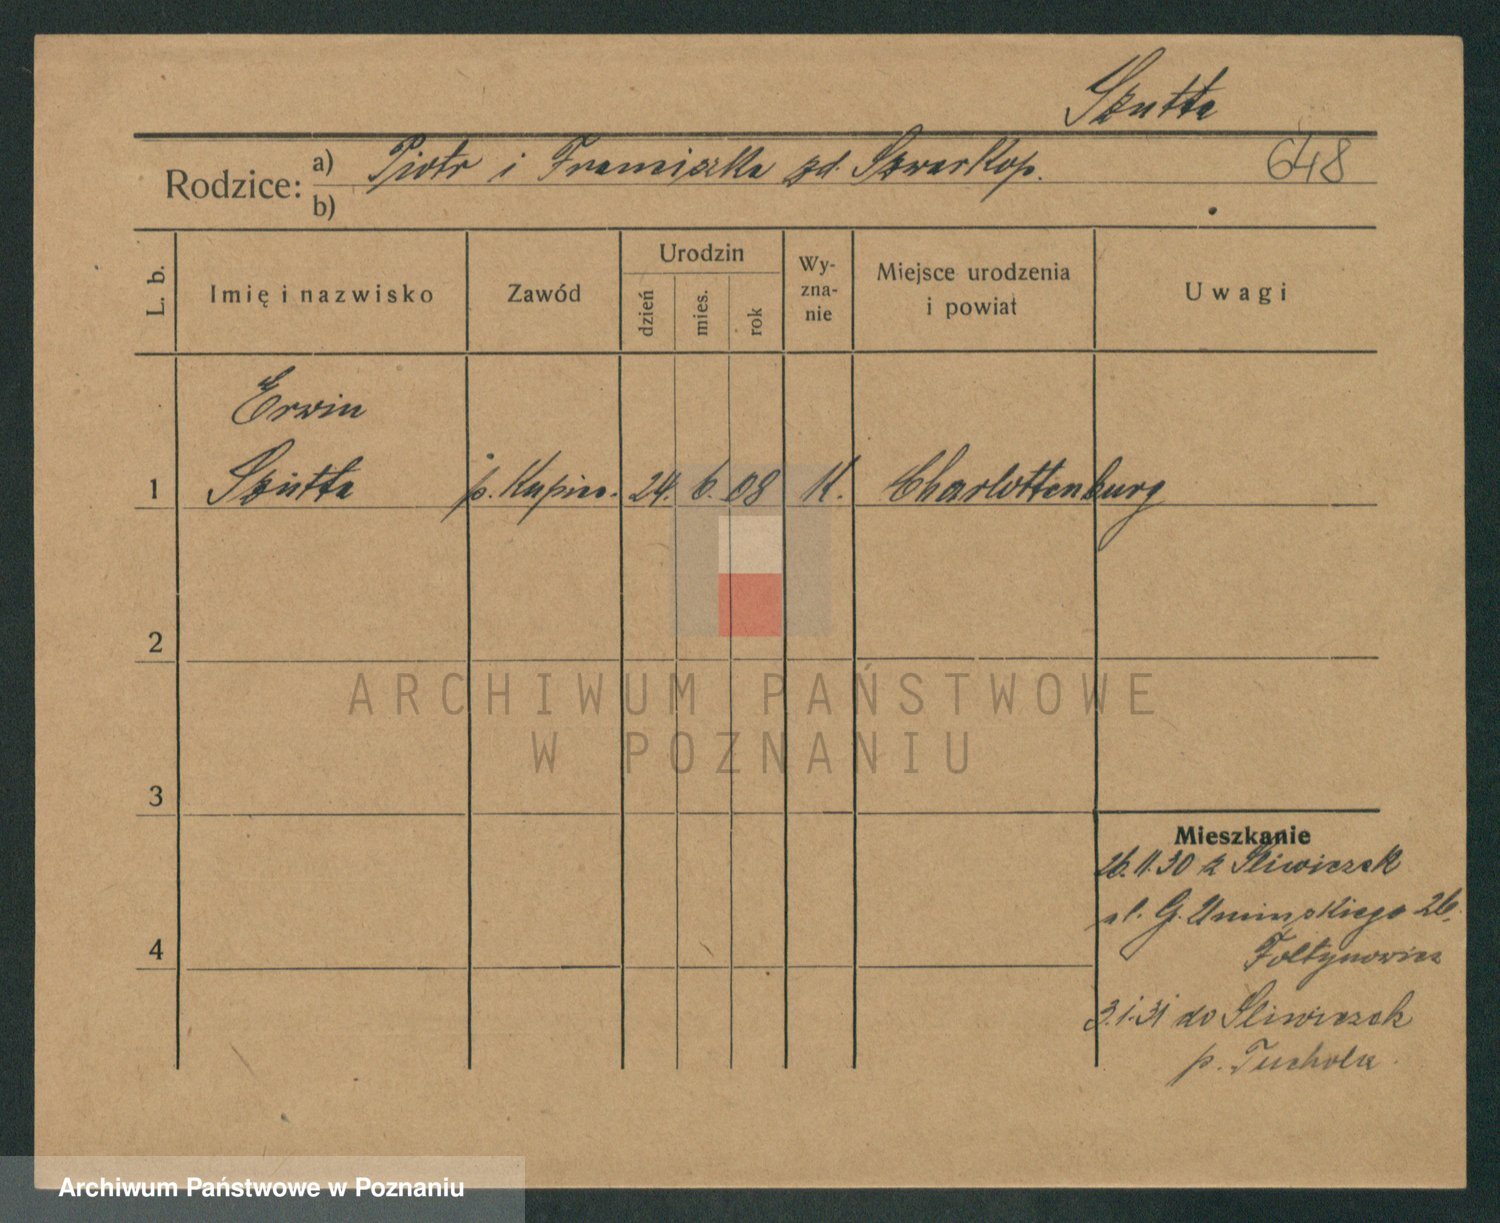 Skutta
Rodzice: a) Piotr i Franciszka zd. Szwarkop.
648
b)
L. b.
Imię i nazwisko
Zawód
Urodzin
dzień
mies.
rok
Wy-
zna-
nie
Miejsce urodzenia
i powiat
Uwagi
Erwin
1 Skutta p. Kupiec. 24. 6. 08 K. Charlottenburg
2
3
4
Mieszkanie
26.11.30 z Śliwiczek
ul. G. Umińskiego 26.
Foltynowicz
3.1.31 do Śliwiczek
p. Tuchola
ARCHIWUM PAŃSTWOWE
W POZNANIU
Archiwum Państwowe w Poznaniu